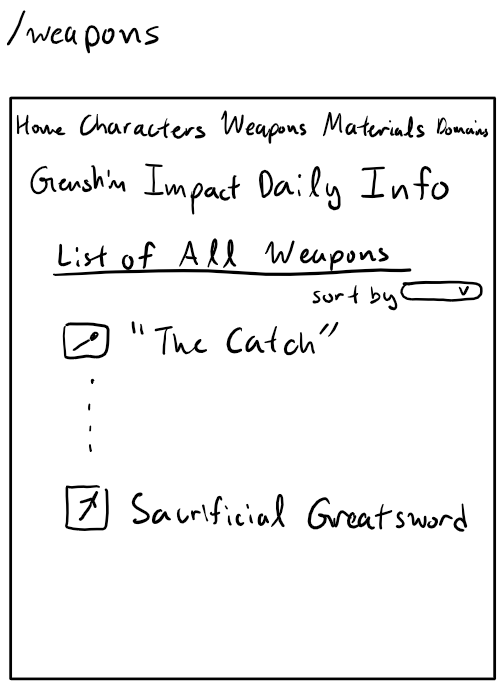 /weapons
Home Characters Weapons Materials Domains
Genshin Impact Daily Info
List of All Weapons
sort by
"The Catch"
Sacrificial Greatsword